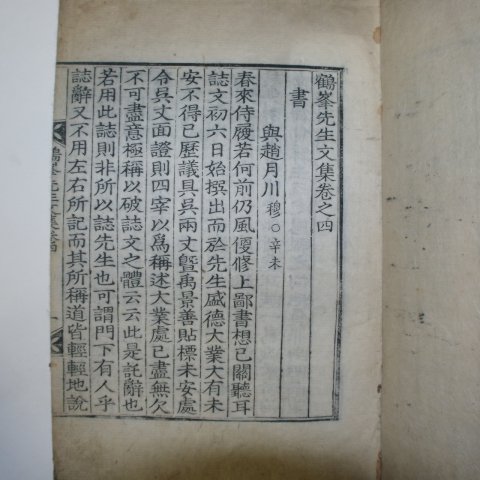 鶴峯先生文集卷之四
書
與趙月川穆○辛未
春來侍履若何前仍風便修上鄙書想已關聽耳
誌文初六日始撰出而於先生盛德大業大有未
安不得已歷議具吳兩丈曁禹景善貼標未安處
令吳丈面證則四宰以爲稱述大業處已盡無欠
不可盡意極稱以破誌文之體云云此是託辭也
若用此誌則非所以誌先生也可謂門下有人乎
誌辭又不用左右所記而其所稱道皆輕輕地說
鶴峯先生文集卷四
一